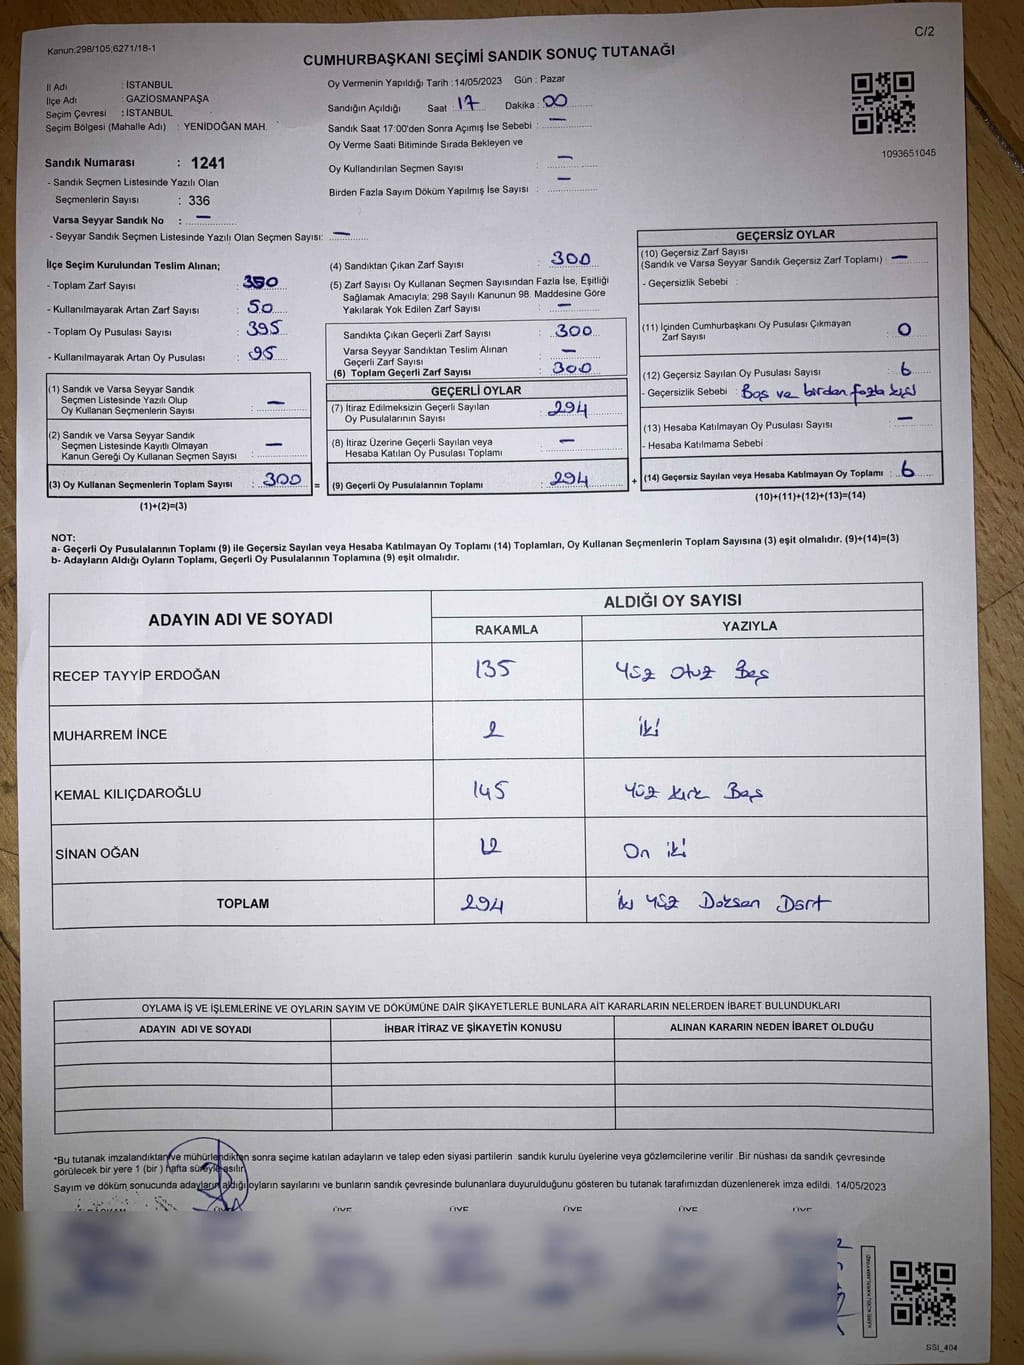 Kanun;298/105;6271/18-1
C/2
CUMHURBAŞKANI SEÇİMİ SANDIK SONUÇ TUTANAĞI
İl Adı : İSTANBUL
İlçe Adı : GAZİOSMANPAŞA
Seçim Çevresi : İSTANBUL
Seçim Bölgesi (Mahalle Adı) : YENİDOĞAN MAH.
Sandık Numarası : 1241
- Sandık Seçmen Listesinde Yazılı Olan
Seçmenlerin Sayısı : 336
Varsa Seyyar Sandık No : —
- Seyyar Sandık Seçmen Listesinde Yazılı Olan Seçmen Sayısı: —
Oy Vermenin Yapıldığı Tarih : 14/05/2023 Gün : Pazar
Sandığın Açıldığı Saat : 17 Dakika : 00
Sandık Saat 17:00'den Sonra Açımış İse Sebebi : —
Oy Verme Saati Bitiminde Sırada Bekleyen ve
Oy Kullandırılan Seçmen Sayısı : —
Birden Fazla Sayım Döküm Yapılmış İse Sayısı : —
1093651045
İlçe Seçim Kurulundan Teslim Alınan;
- Toplam Zarf Sayısı : 350
- Kullanılmayarak Artan Zarf Sayısı : 50
- Toplam Oy Pusulası Sayısı : 395
- Kullanılmayarak Artan Oy Pusulası : 95
(1) Sandık ve Varsa Seyyar Sandık
Seçmen Listesinde Yazılı Olup
Oy Kullanan Seçmenlerin Sayısı : —
(2) Sandık ve Varsa Seyyar Sandık
Seçmen Listesinde Kayıtlı Olmayan
Kanun Gereği Oy Kullanan Seçmen Sayısı : —
(3) Oy Kullanan Seçmenlerin Toplam Sayısı : 300 =
(1)+(2)=(3)
(4) Sandıktan Çıkan Zarf Sayısı : 300
(5) Zarf Sayısı Oy Kullanan Seçmen Sayısından Fazla İse, Eşitliği
Sağlamak Amacıyla; 298 Sayılı Kanunun 98. Maddesine Göre
Yakılarak Yok Edilen Zarf Sayısı : —
Sandıkta Çıkan Geçerli Zarf Sayısı : 300
Varsa Seyyar Sandıktan Teslim Alınan
Geçerli Zarf Sayısı : —
(6) Toplam Geçerli Zarf Sayısı : 300
GEÇERLİ OYLAR
(7) İtiraz Edilmeksizin Geçerli Sayılan
Oy Pusulasının Sayısı : 294
(8) İtiraz Üzerine Geçerli Sayılan veya
Hesaba Katılan Oy Pusulası Toplamı : —
(9) Geçerli Oy Pusulalarının Toplamı : 294 +
GEÇERSİZ OYLAR
(10) Geçersiz Zarf Sayısı
(Sandık ve Varsa Seyyar Sandık Geçersiz Zarf Toplamı) : —
- Geçersizlik Sebebi :
(11) İçinden Cumhurbaşkanı Oy Pusulası Çıkmayan
Zarf Sayısı : 0
(12) Geçersiz Sayılan Oy Pusulası Sayısı : 6
- Geçersizlik Sebebi : Boş ve birden fazla kişi
(13) Hesaba Katılmayan Oy Pusulası Sayısı : —
- Hesaba Katılmama Sebebi :
(14) Geçersiz Sayılan veya Hesaba Katılmayan Oy Toplamı : 6
(10)+(11)+(12)+(13)=(14)
NOT:
a- Geçerli Oy Pusulalarının Toplamı (9) ile Geçersiz Sayılan veya Hesaba Katılmayan Oy Toplamı (14) Toplamları, Oy Kullanan Seçmenlerin Toplam Sayısına (3) eşit olmalıdır. (9)+(14)=(3)
b- Adayların Aldığı Oyların Toplamı, Geçerli Oy Pusulalarının Toplamına (9) eşit olmalıdır.
ADAYIN ADI VE SOYADI ALDIĞI OY SAYISI
RAKAMLA YAZIYLA
RECEP TAYYİP ERDOĞAN 135 Yüz Otuz Beş
MUHARREM İNCE 2 iki
KEMAL KILIÇDAROĞLU 145 Yüz kırk Beş
SİNAN OĞAN 12 On iki
TOPLAM 294 iki Yüz Doksan Dört
OYLAMA İŞ VE İŞLEMLERİNE VE OYLARIN SAYIM VE DÖKÜMÜNE DAİR ŞİKAYETLERLE BUNLARA AİT KARARLARIN NELERDEN İBARET BULUNDUKLARI
ADAYIN ADI VE SOYADI İHBAR İTİRAZ VE ŞİKAYETİN KONUSU ALINAN KARARIN NEDEN İBARET OLDUĞU
*Bu tutanak imzalandıktan ve mühürlendikten sonra seçime katılan adayların ve talep eden siyasi partilerin sandık kurulu üyelerine veya gözlemcilerine verilir .Bir nüshası da sandık çevresinde
görülecek bir yere 1 (bir ) hafta süreyle asılır.
Sayım ve döküm sonucunda adayların aldığı oyların sayılarını ve bunların sandık çevresinde bulunanlara duyurulduğunu gösteren bu tutanak tarafımızdan düzenlenerek imza edildi. 14/05/2023
BAŞKAN ÜYE ÜYE ÜYE ÜYE ÜYE ÜYE
SSI_404